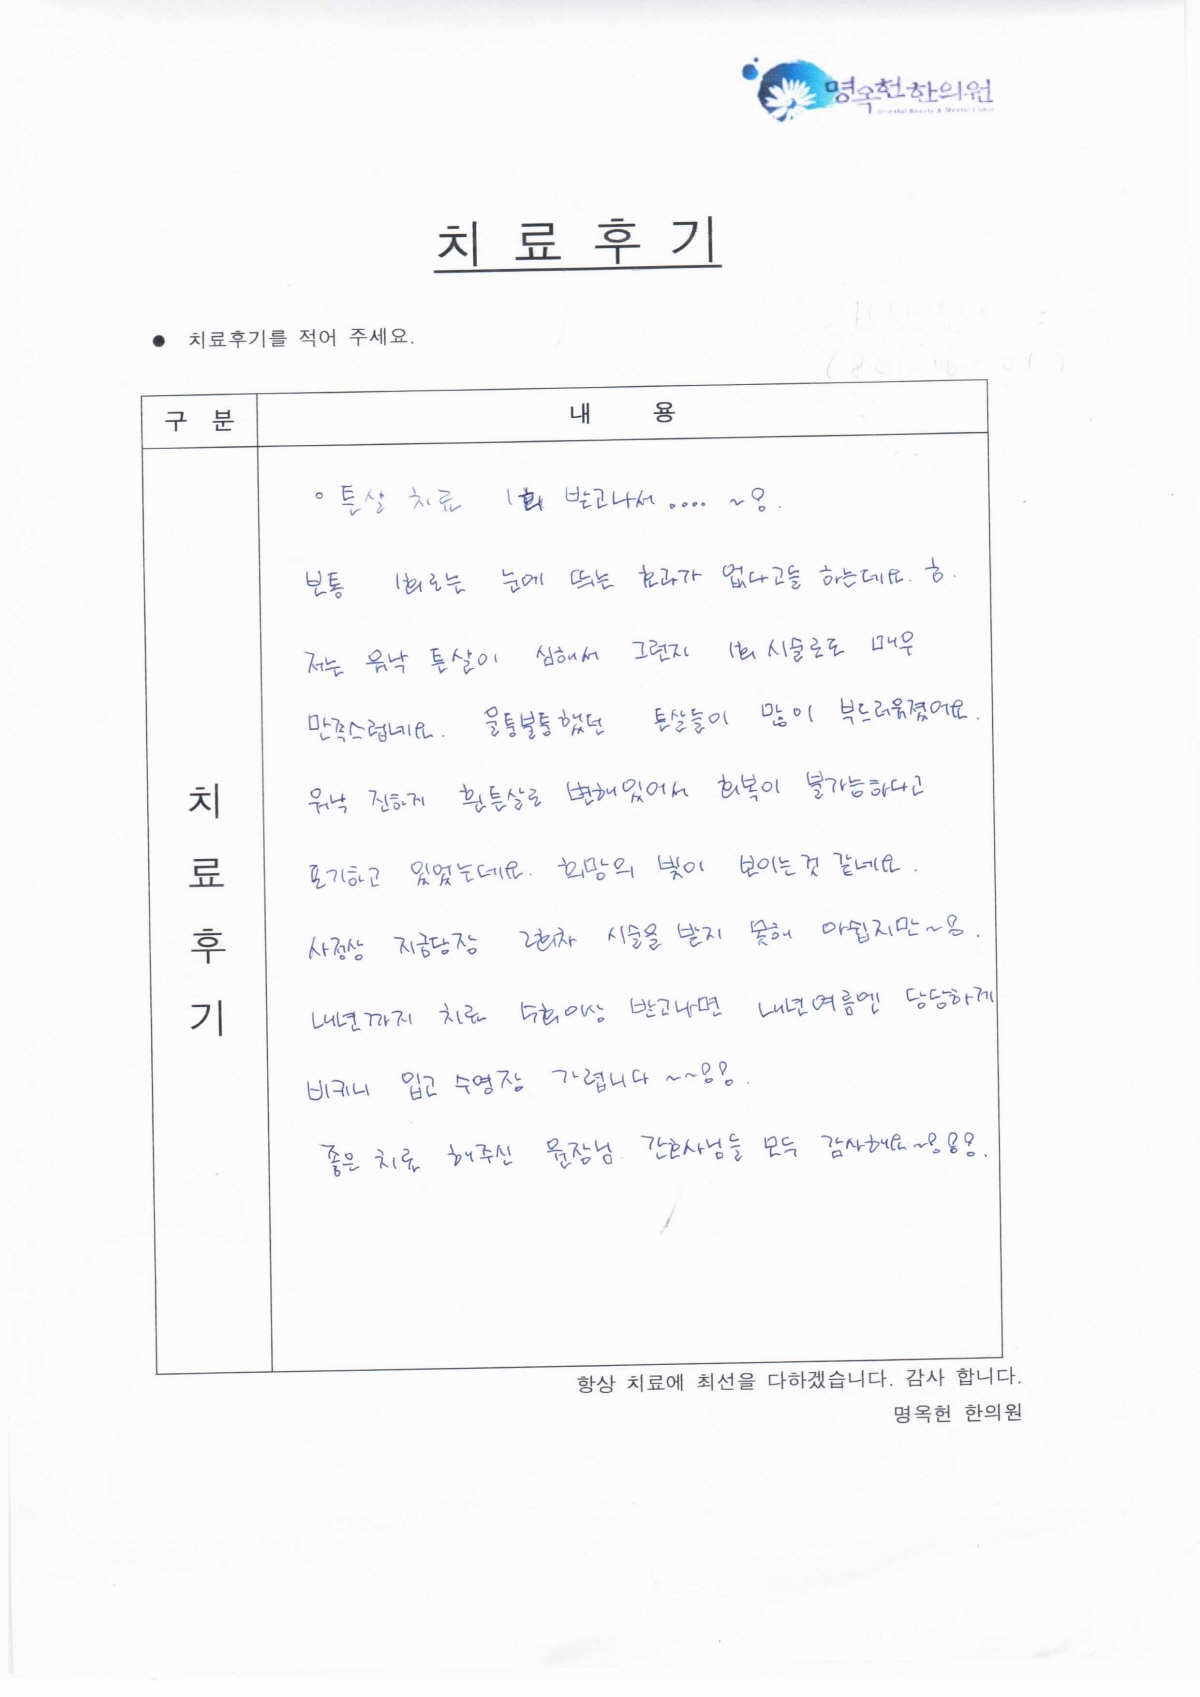 명옥헌한의원
Oriental Beauty & Mental Clinic
치 료 후 기
● 치료후기를 적어 주세요.
구 분 내 용
치
료
후
기
° 튼살 치료 1회 받고나서.... ~용.
보통 1회로는 눈에 띄는 효과가 없다고들 하는데요. ㅎ.
저는 워낙 튼살이 심해서 그런지 1회 시술로도 매우
만족스럽네요. 울퉁불퉁했던 튼살들이 많이 부드러워졌어요.
워낙 진하게 흰튼살로 변해있어서 회복이 불가능하다고
포기하고 있었는데요. 희망의 빛이 보이는것 같네요.
사정상 지금당장 2회차 시술을 받지 못해 아쉽지만~용.
내년까지 치료 수회이상 받고나면 내년여름엔 당당하게
비키니 입고 수영장 가렵니다 ~~용용.
좋은 치료 해주신 원장님. 간호사님들 모두 감사해요~용용용.
항상 치료에 최선을 다하겠습니다. 감사 합니다.
명옥헌 한의원